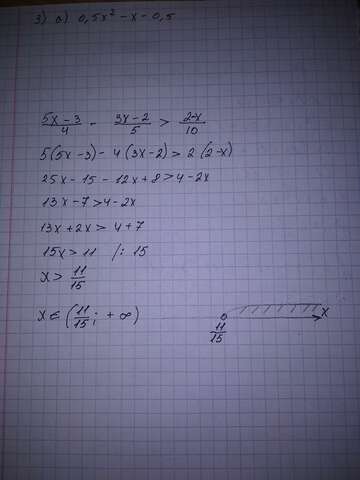 3) a) 0,5x² - x - 0,5
(5x-3)/4 - (3x-2)/5 > (2-x)/10
5(5x-3) - 4(3x-2) > 2(2-x)
25x - 15 - 12x + 8 > 4 - 2x
13x - 7 > 4 - 2x
13x + 2x > 4 + 7
15x > 11 /: 15
x > 11/15
x ∈ (11/15; + ∞)
x
11/15